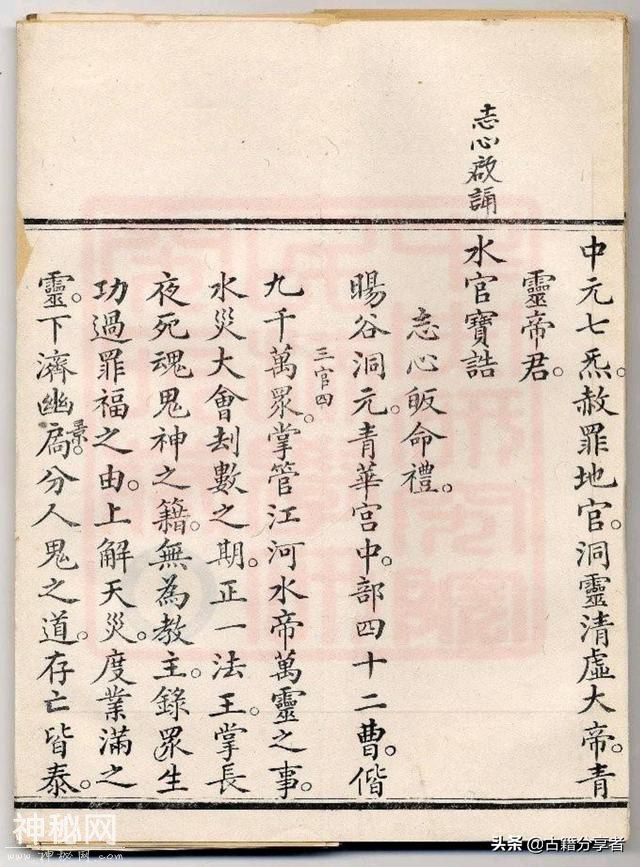 中元七炁。赦罪地官。洞靈清虛大帝。青
靈帝君。
志心啟誦
水官寶誥
志心皈命禮。
暘谷洞元。青華宮中。部四十二曹。偕
三官四
九千萬眾。掌管江河水帝萬靈之事。
水災大會刦數之期。正一法王。掌長
夜死魂鬼神之籍。無為教主。錄眾生
功過罪福之由。上解天災。度業滿之
靈。下濟幽扃。分人鬼之道。存亡皆泰。
神秘网
头条 @古籍分享者